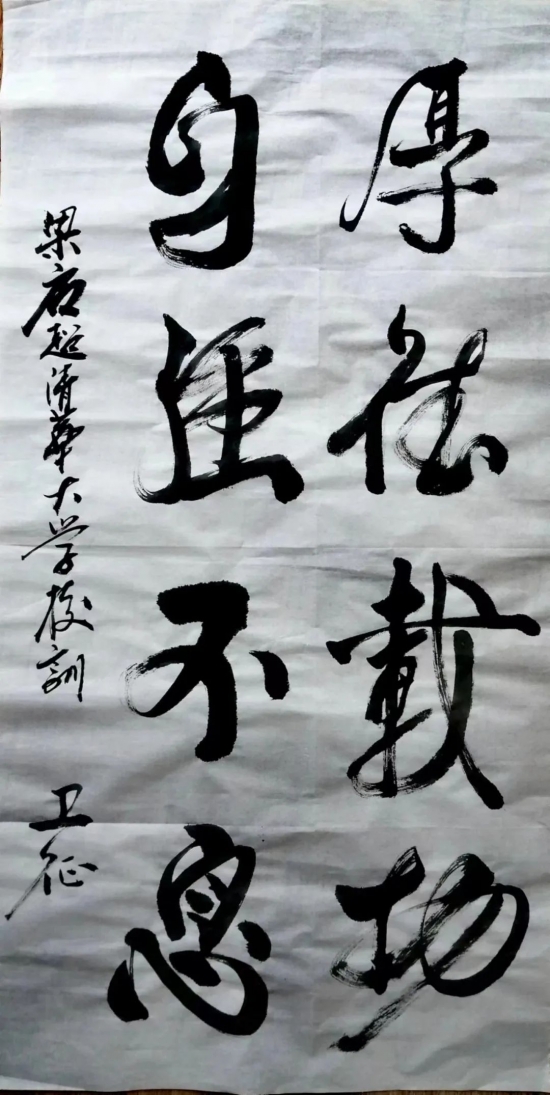 厚德载物
自强不息
梁启超清華大学校訓
卫征